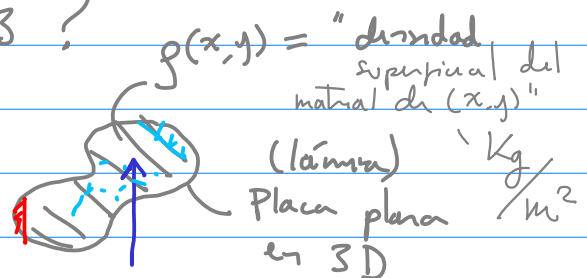 3 ?
ρ(x,y) = "densidad
superficial del
material de (x,y)"
(lámina)
Kg/m²
Placa plana
en 3D